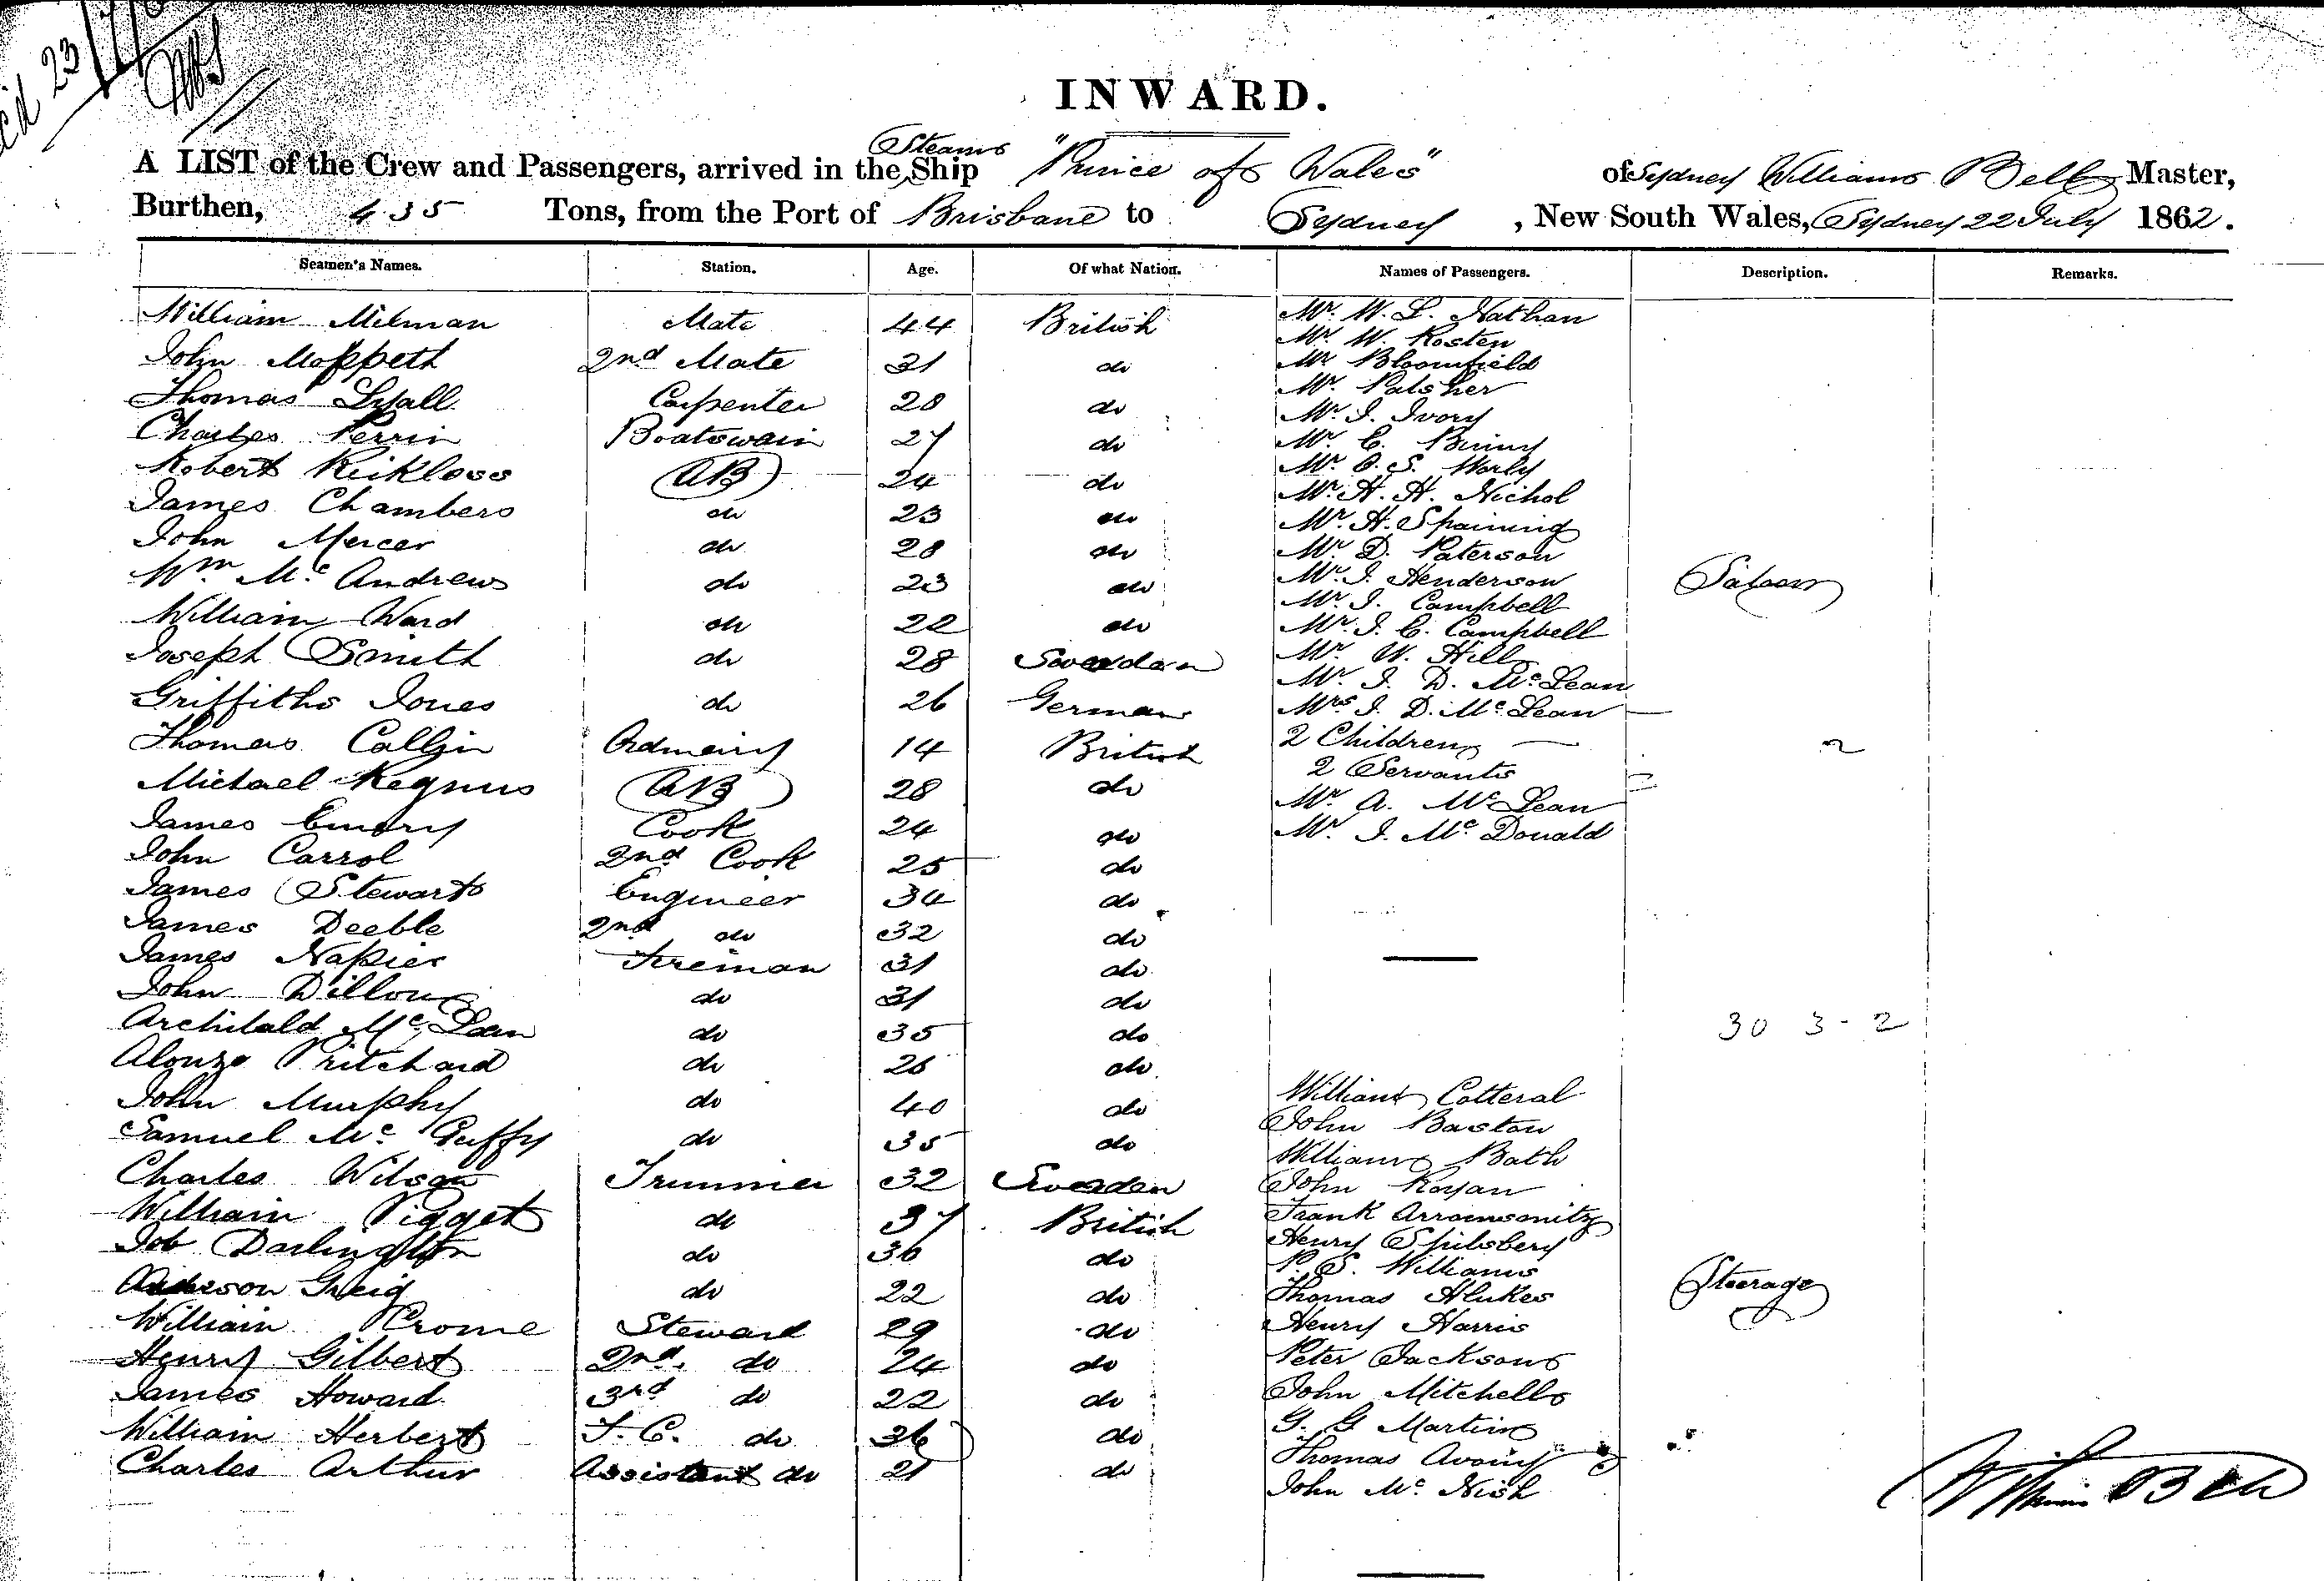 INWARD.
A LIST of the Crew and Passengers, arrived in the Steam Ship "Prince of Wales" of Sydney William Bell Master,
Burthen, 435 Tons, from the Port of Brisbane to Sydney, New South Wales, Sydney 22 July 1862.
Seamen's Names. Station. Age. Of what Nation. Names of Passengers. Description. Remarks.
William Milman Mate 44 British Mr. W. L. Nathan
Mr. W. Kosten
John Moppeth 2nd Mate 31 do Mr Bloomfield
Mr. Palsher
Thomas Lyall Carpenter 28 do Mr. J. Ivory
Charles Perrin Boatswain 27 do Mr. C. Binny
Mr. O. S. Worly
Robert Reikless AB 24 do Mr. H. H. Nichol
James Chambers do 23 do Mr. H. Spaining
John Mercer do 28 do Mr. D. Paterson
Wm. Mc Andrews do 23 do Mr. J. Henderson Saloon
Mr. J. Campbell
William Ward do 22 do Mr. J. C. Campbell
Joseph Smith do 28 Sweden Mr. W. Hill
Mr. J. D. McLean
Griffiths Jones do 26 German Mrs J. D. McLean
Thomas Callin Ordinary 14 British 2 Children 2
2 Servants
Michael Regnus AB 28 do Mr. A. McLean
James Emery Cook 24 do Mr. J. McDonald
John Carrol 2nd Cook 25 do
James Stewart Engineer 34 do
James Deeble 2nd do 32 do
James Napier Fireman 31 do
John Dillon do 31 do
Archibald McLean do 35 do 30 3 - 2
Alonzo Pritchard do 26 do
John Murphy do 40 do William Cotteral
John Baston
Samuel Mc Guffy do 35 do William Bath
Charles Wilson Trimmer 32 Sweden John Royan
William Pigget do 37 British Frank
Henry Spilsbery
Job Darlington do 36 do P. S. Williams
Anderson Greig do 22 do Thomas Hlukes Steerage
William Crome Steward 29 do Henry Harris
Henry Gilbert 2nd. do 24 do Peter Jackson
James Howard 3rd do 22 do John Mitchell
William Herbert F. C. do 36 do G. G Martin
Charles Arthur Assistant do 21 do Thomas Avoiny
John Mc Nish
William Bell